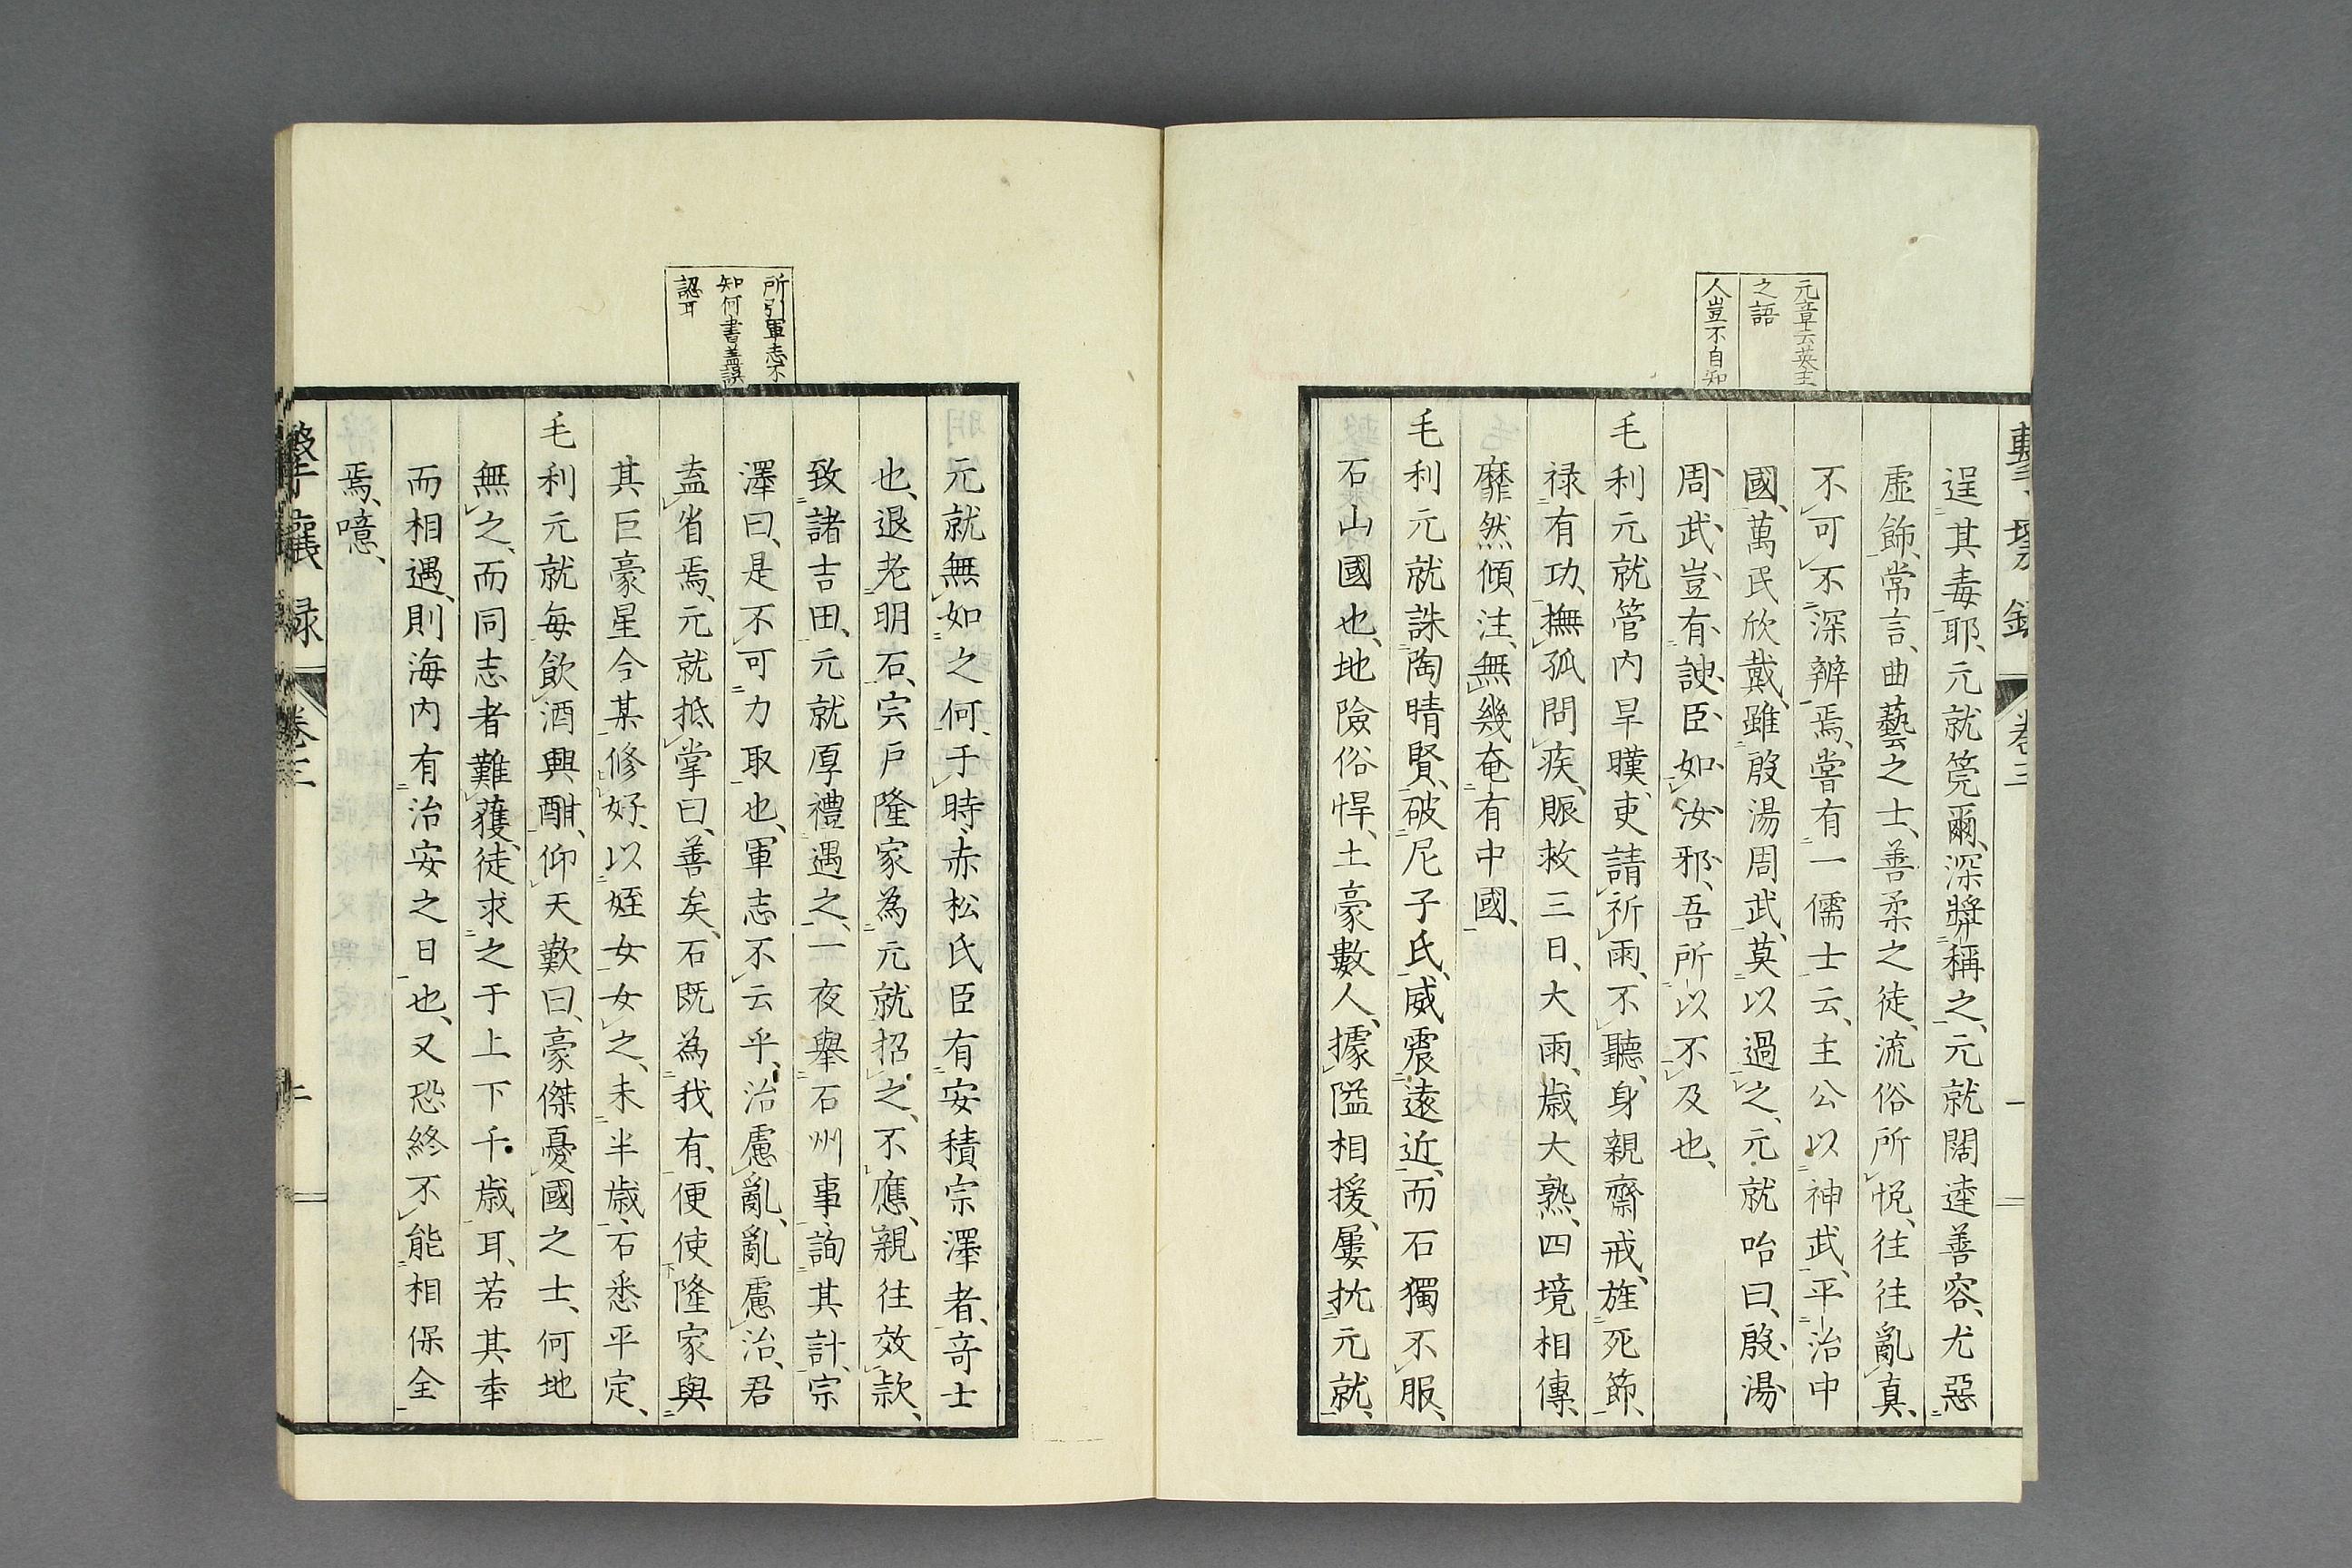 元章云英主
之語
人豈不自知
逞其毒耶、元就筦爾、深奬稱之、元就闊達善容、尤惡
虛飾、常言、曲藝之士、善柔之徒、流俗所悅、往往亂真、
不可不深辨焉、嘗有一儒士云、主公以神武、平治中
國、萬民欣戴、雖殷湯周武、莫以過之、元就咍曰、殷湯
周武、豈有諛臣如汝邪、吾所以不及也、
毛利元就管內旱暵、吏請祈雨、不聽、身親齋戒、旌死節、
祿有功、撫孤問疾、賑救三日、大雨、歲大熟、四境相傳、
靡然傾注、無幾奄有中國、
毛利元就誅陶晴賢、破尼子氏、威震遠近、而石獨不服、
石山國也、地險俗悍、土豪數人、據隘相援、屢抗元就、
所引軍志不
知何書蓋誤
認耳
元就無如之何、于時、赤松氏臣有安積宗澤者、奇士
也、退老明石、宍戶隆家為元就招之、不應、親往效款、
致諸吉田、元就厚禮遇之、一夜舉石州事、詢其計、宗
澤曰、是不可力取也、軍志不云乎、治慮亂、亂慮治、君
盍省焉、元就抵掌曰、善矣、石既為我有、便使隆家與
其巨豪星合某修好、以姪女女之、未半歲、石悉平定、
毛利元就每飲酒興酣、仰天歎曰、豪傑憂國之士、何地
無之、而同志者難獲、徒求之于上下千歲耳、若其幸
而相遇、則海內有治安之日也、又恐終不能相保全
焉、噫、
卷三